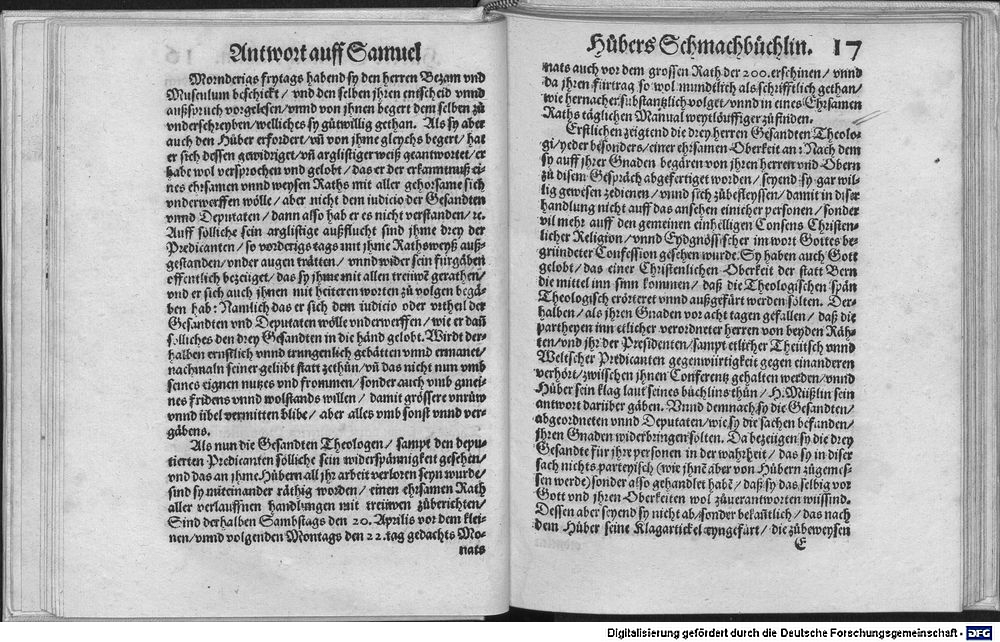 Antwort auff Samuel
Mornderigs frytags habend sy den herren Bezam vnd
Musculum beschickt / vnd den selben jhren entscheid vnnd
außspruch vorgelesen / vnnd von jhnen begert dem selben zů
vnderschreyben / welliches sy gůtwillig gethan. Als sy aber
auch den Hůber erfordert / vñ von jhme gleychs begert / hat
er sich dessen gewidriget / vñ arglistiger weiß geantwortet / er
habe wol versprochen vnd gelobt / das er der erkanntnuß ei-
nes ehrsamen vnnd weysen Raths mit aller gehorsame sich
vnderwerffen wölle / aber nicht dem iudicio der Gesandten
vnnd Deputaten / dann also hab er es nicht verstanden / ꝛc.
Auff sölliche sein arglistige außflucht sind jhme drey der
Predicanten / so vorderigs tags mit jhme Rathsweyß auß-
gestanden / vnder augen trätten / vnnd wider sein fürgäben
offentlich bezeüget / das sy jhme mit allen treüwẽ gerathen /
vnd er sich auch jhnen mit heiteren worten zů volgen begä-
ben hab: Namlich das er sich dem iudicio oder vrtheil der
Gesandten vnd Deputaten wölle vnderwerffen / wie er dañ
sölliches den drey Gesandten in die händ gelobt. Wirdt der-
halben ernstlich vnnd trungenlich gebätten vnnd ermanet /
nachmaln seiner gelübt statt zethůn / vñ das nicht nun vmb
seines eignen nutzes vnd frommen / sonder auch vmb gmei-
nes fridens vnnd wolstands willen / damit grössere vnrůw
vnnd übel vermitten blibe / aber alles vmb sonst vnnd ver-
gäbens.
Als nun die Gesandten Theologen / sampt den depu-
tierten Predicanten sölliche sein widerspännigkeit gesehen /
vnd das an jhme Hůbern all jhr arbeit verloren seyn wurde /
sind sy miteinander räthig worden / einen ehrsamen Rath
aller verlauffnen handlungen mit treüwen zůberichten /
Sind derhalben Sambstags den 20. Aprilis vor dem klei-
nen / vnnd volgenden Montags den 22. tag gedachts Mo-
nats
Hůbers Schmachbüchlin. 17
nats auch vor dem grossen Rath der 200. erschinen / vnnd
da jhren fürtrag so wol mundtlich als schrifftlich gethan /
wie hernacher substantzlich volget / vnnd in eines Ehrsamen
Raths täglichen Manual weytlöuffiger zůfinden.
Erstlichen zeigtend die drey herren Gesandten Theolo-
gi / yeder besonders / einer ehrsamen Oberkeit an: Nach dem
sy auff jhrer Gnaden begären von jhren herren vnd Obern
zů disem Gespräch abgefertiget worden / seyend sy gar wil-
lig gewesen zedienen / vnnd sich zůbeflyssen / damit in diser
handlung nicht auff das ansehen einicher personen / sonder
vil mehr auff den gemeinen einhelligen Consens Christen-
licher Religion / vnnd Eydgnössischer im wort Gottes be-
gründeter Confession gesehen wurde. Sy haben auch Gott
gelobt / das einer Christenlichen Oberkeit der statt Bern
die mittel inn sinn kommen / daß die Theologischen spän
Theologisch erörteret vnnd außgefürt werden sölten. Der-
halben / als jhren Gnaden vor acht tagen gefallen / daß die
partheyen inn etlicher verordneter herren von beyden Räh-
ten / vnd jhr der Presidenten / sampt etlicher Theütsch vnnd
Weltscher Predicanten gegenwürtigkeit gegen einanderen
verhört / zwischen jhnen Conferentz gehalten werden / vnnd
Hůber sein klag laut seines büchlins thůn / H. Müßlin sein
antwort darüber gäben. Vnnd demnach sy die Gesandten /
abgeordneten vnnd Deputaten / wie sy die sachen befanden /
jhren Gnaden widerbringen solten. Da bezeügen sy die drey
Gesandte für jhre personen in der wahrheit / das sy in diser
sach nichts parteyisch (wie jhnẽ aber von Hůbern zůgemes-
sen werde) sonder also gehandlet habẽ / daß sy das selbig vor
Gott vnd jhren Oberkeiten wol zůuerantworten wüssind.
Dessen aber seyend sy nicht ab / sonder bekañtlich / das nach
dem Hůber seine Klagartickel yngefürt / die zůbeweysen
E
Digitalisierung gefördert durch die Deutsche Forschungsgemeinschaft - DFG